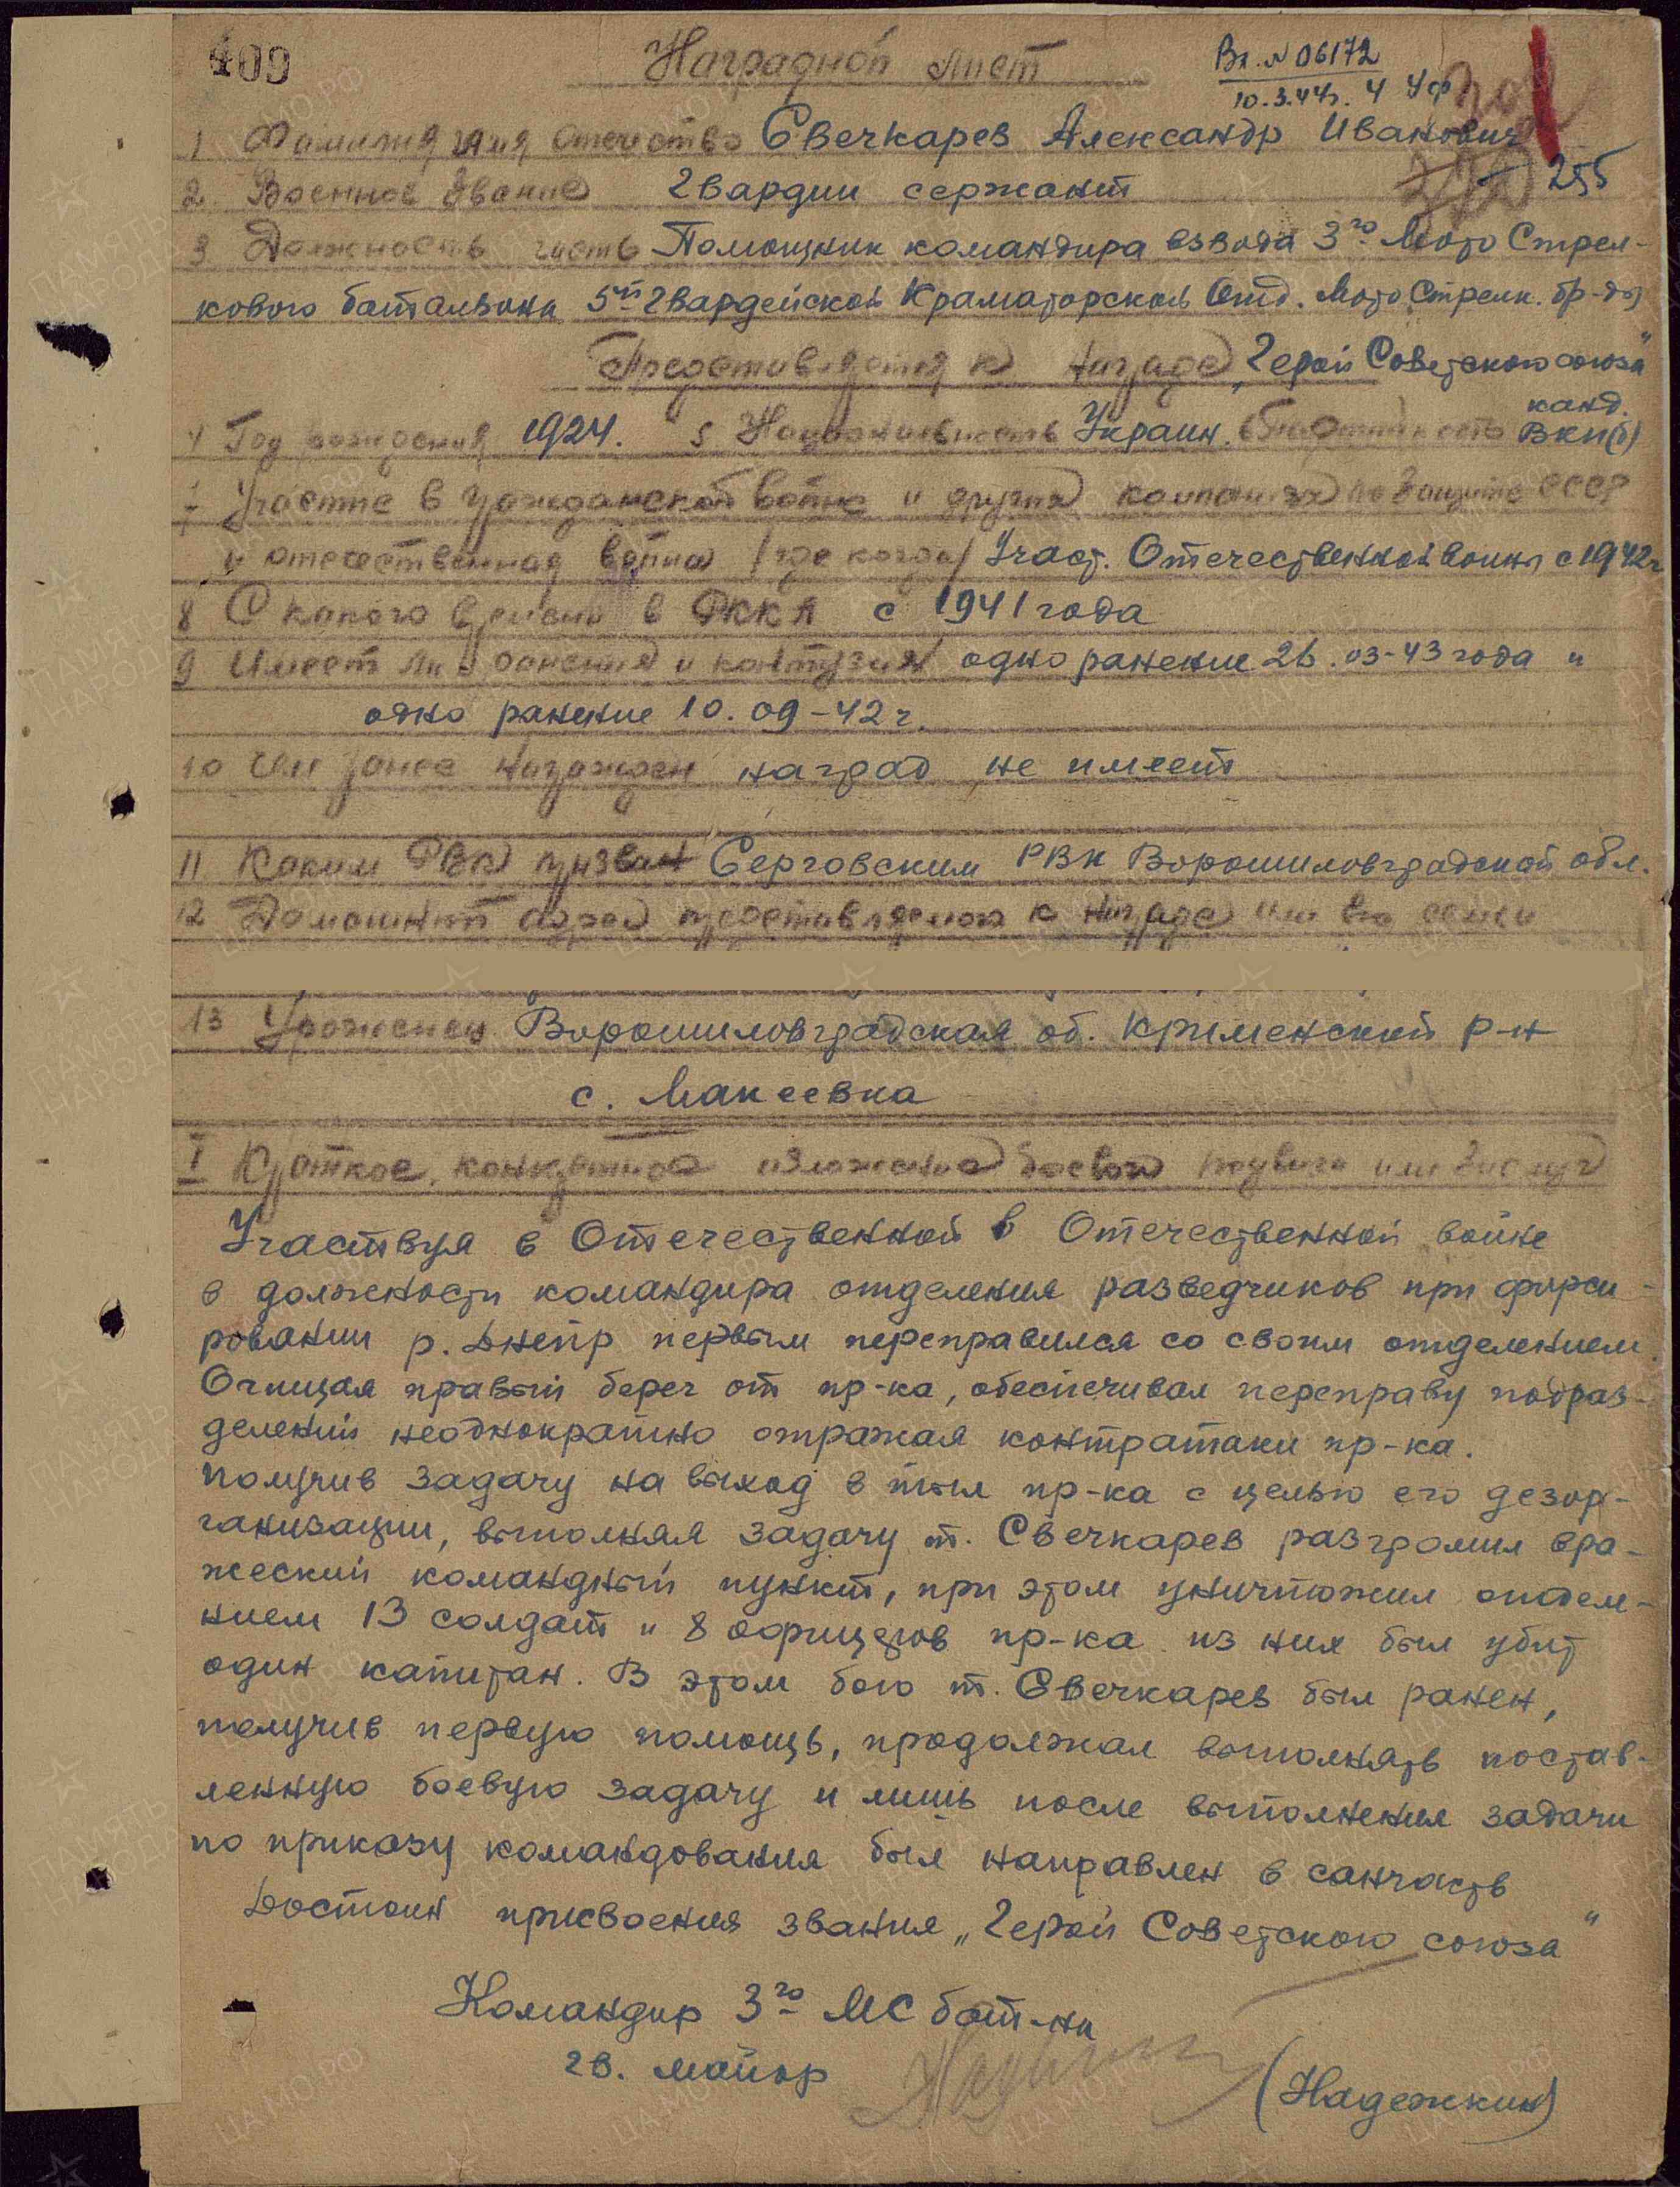 409
Наградной лист
Вх. № 06172
10.3.44г. 4 Уф
1 Фамилия имя отчество Свечкарев Александр Иванович
2. Военное звание Гвардии сержант
255
3 Должность часть Помощник командира взвода 3го Мото Стрел-
кового батальона 5й Гвардейской Краматорской Отд. Мото Стрелк. бр-ды
Представляется к награде „Герой Советского союза"
канд.
4 Год рождения 1924. 5 Национальность Украин. 6 Партийность ВКП(б)
7 Участие в гражданской войне и других кампаниях по защите СССР
и отечественной войне (где когда) Участ. Отечественной войны с 1942г
8 С какого времени в РККА с 1941 года
9 Имеет ли ранения и контузии одно ранение 26.03-43 года и
одно ранение 10.09-42г.
10 Чем ранее награжден наград не имеет
11 Каким РВК призван Серговским РВК Ворошиловградской обл.
12 Домашний адрес представляемого к награде или его семьи
13 Уроженец Ворошиловградская об. Крименский р-н
с. Макеевка
I Краткое, конкретное изложение боевого подвига или заслуг
Участвуя в Отечественной в Отечественной войне
в должности командира отделения разведчиков при форси-
ровании р. Днепр первым переправился со своим отделением.
Очищая правый берег от пр-ка, обеспечивал переправу подраз-
делений неоднократно отражая контратаки пр-ка.
Получив задачу на выход в тыл пр-ка с целью его дезор-
ганизации, выполняя задачу т. Свечкарев разгромил вра-
жеский командный пункт, при этом уничтожил отделе-
нием 13 солдат и 8 офицеров пр-ка из них был убит
один капитан. В этом бою т. Свечкарев был ранен,
получив первую помощь, продолжал выполнять постав-
ленную боевую задачу и лишь после выполнения задачи
по приказу командования был направлен в санчасть
Достоин присвоения звания „Герой Советского союза"
Командир 3го МС бат-на
гв. майор
(Надежкин)